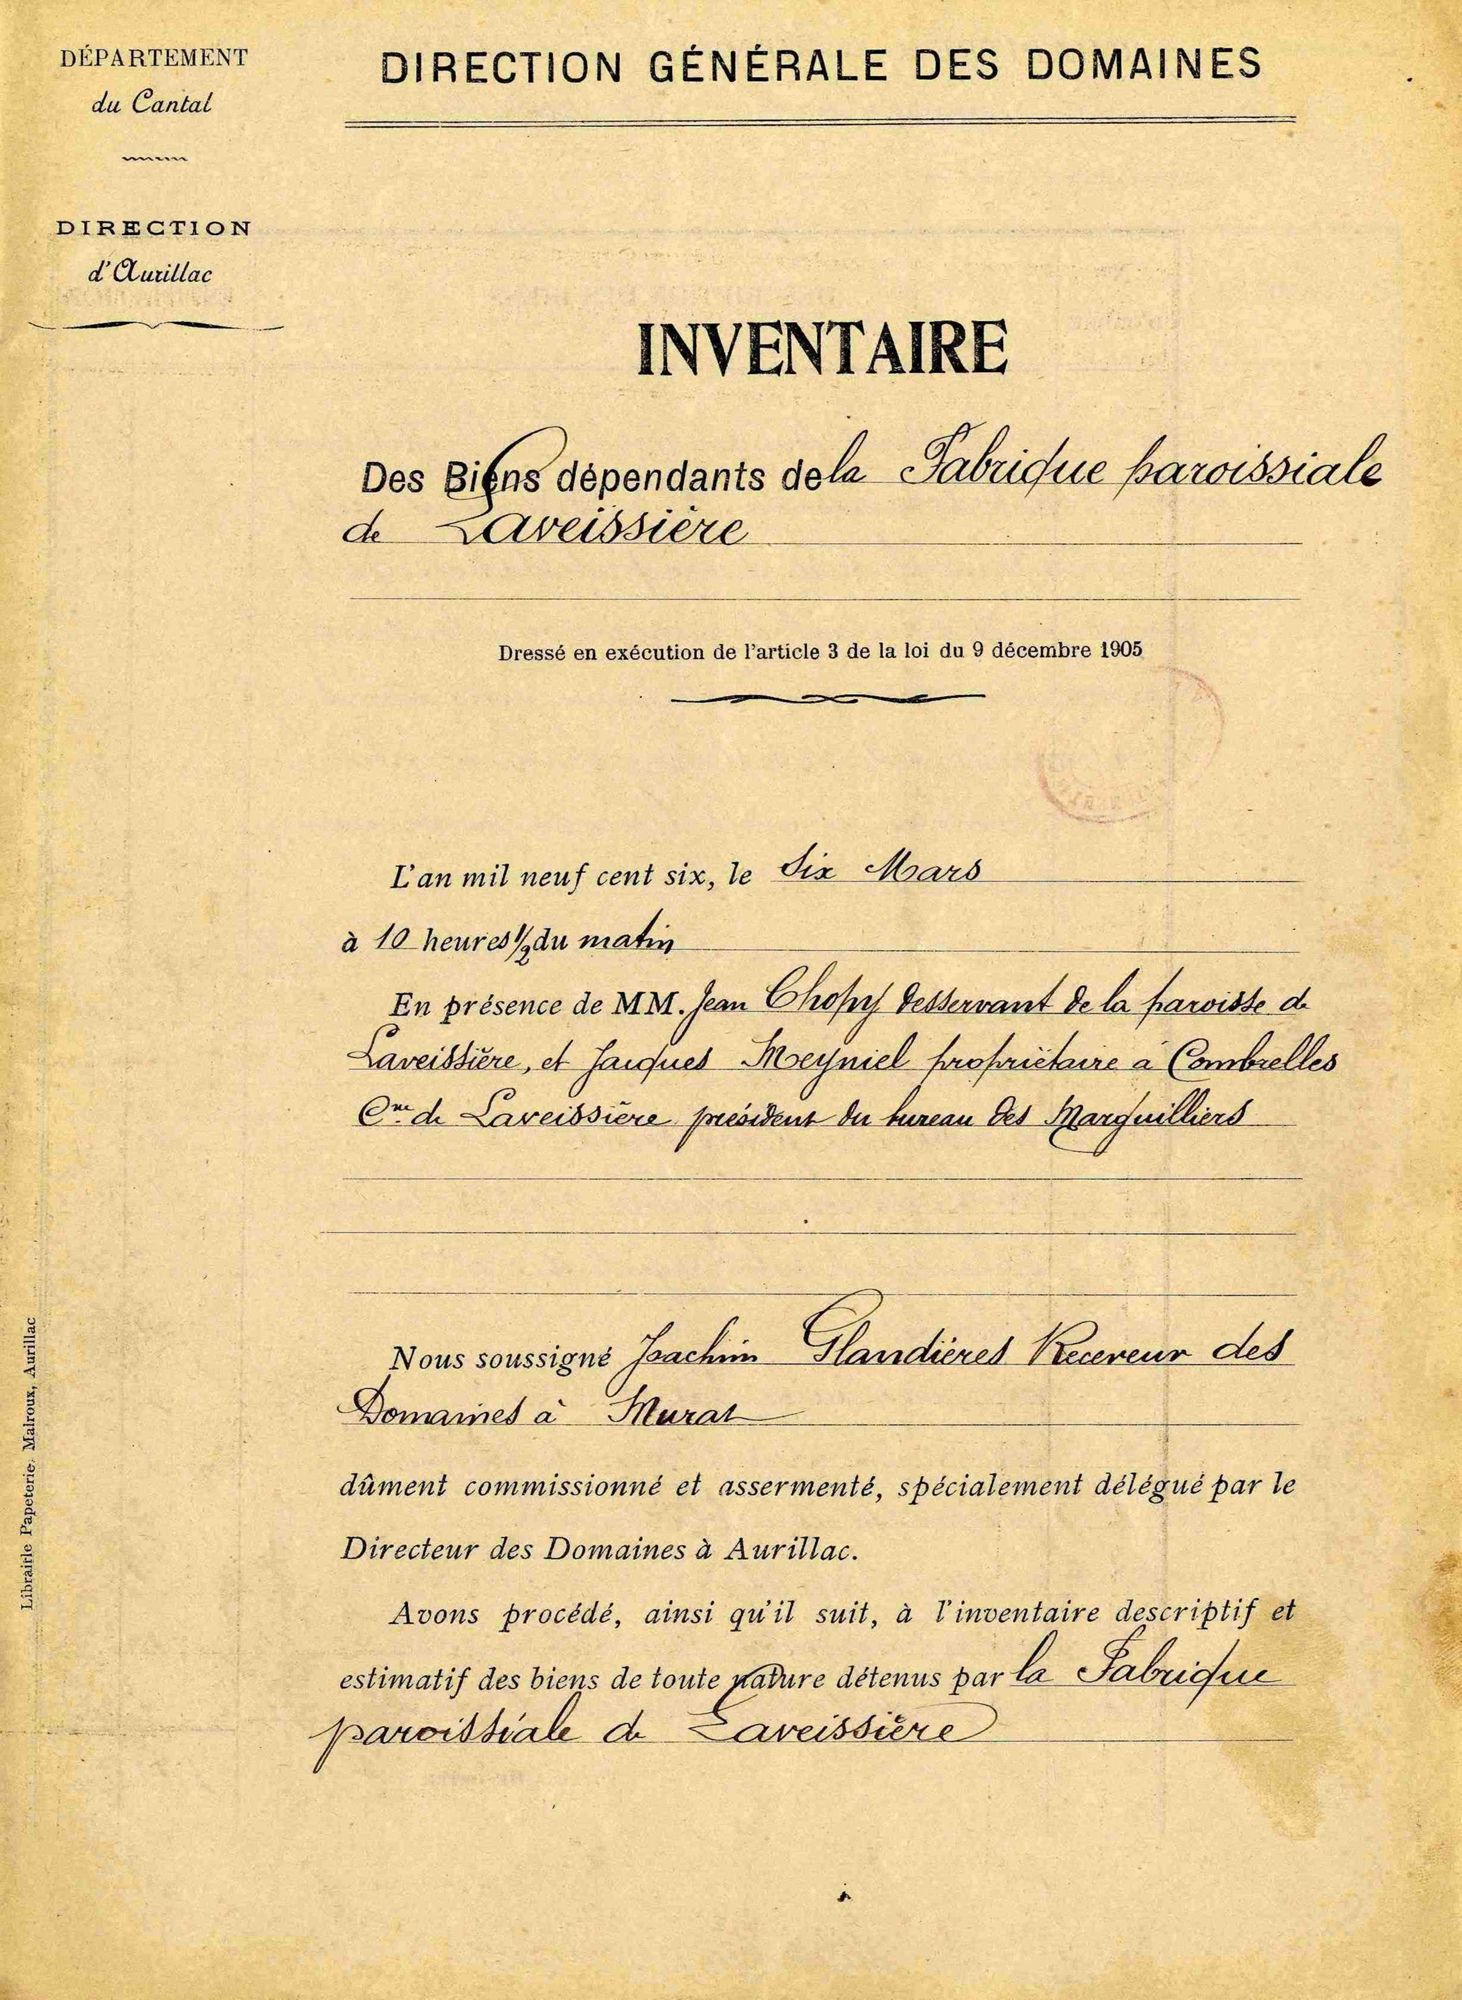 DÉPARTEMENT
du Cantal
DIRECTION
d'Aurillac
DIRECTION GÉNÉRALE DES DOMAINES
INVENTAIRE
Des Biens dépendants de la Fabrique paroissiale
de Laveissière
Dressé en exécution de l'article 3 de la loi du 9 décembre 1905
L'an mil neuf cent six, le Six Mars
à 10 heures 1/2 du matin
En présence de MM. Jean Chopy desservant de la paroisse de
Laveissière, et Jacques Meyniel propriétaire à Combrelles
Cne de Laveissière président du bureau des Marguilliers
Nous soussigné Joachim Glandières Receveur des
Domaines à Murat
dûment commissionné et assermenté, spécialement délégué par le
Directeur des Domaines à Aurillac.
Avons procédé, ainsi qu'il suit, à l'inventaire descriptif et
estimatif des biens de toute nature détenus par la Fabrique
paroissiale de Laveissière
Librairie Papeterie. Malroux, Aurillac